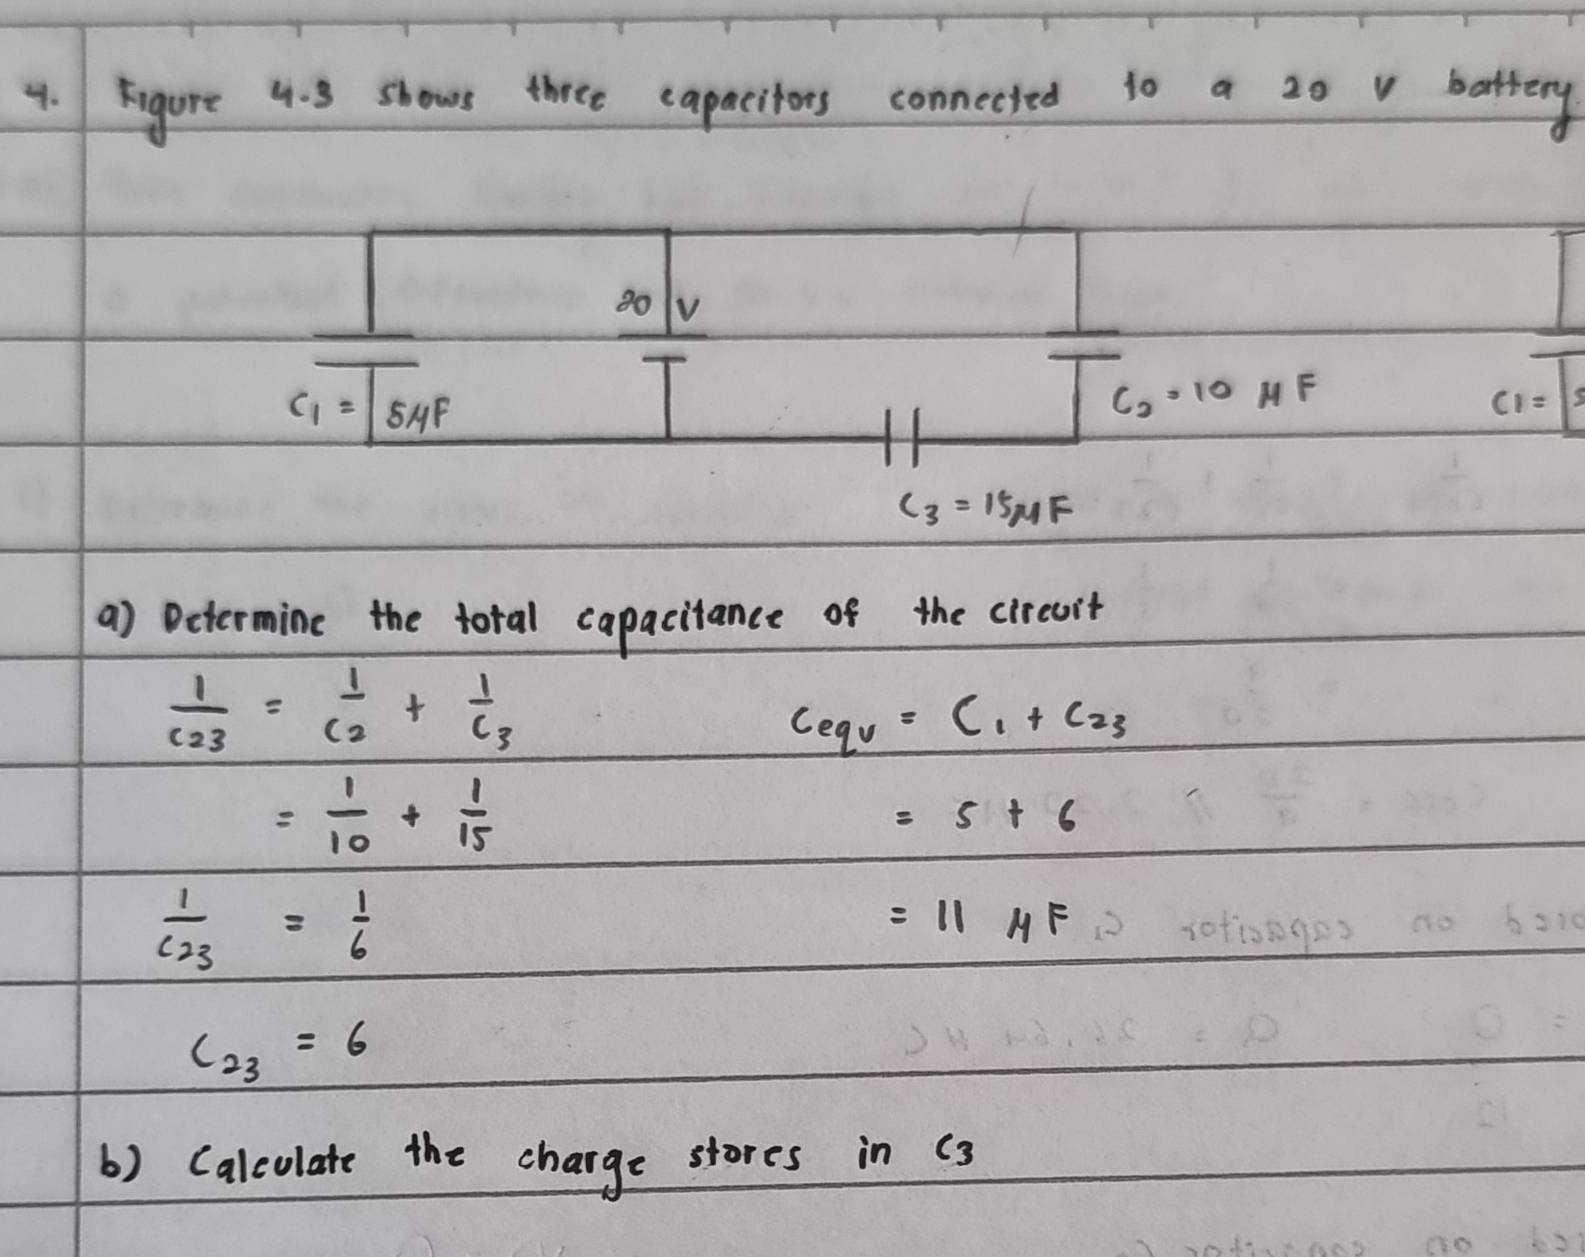 4. Figure 4.3 shows three capacitors connected to a 20 V battery.
20 V
C1 = 5μF
C2 = 10 μF
C1 = 5
C3 = 15μF
a) Determine the total capacitance of the circuit
1/C23 = 1/C2 + 1/C3 Cequ = C1 + C23
= 1/10 + 1/15 = 5 + 6
1/C23 = 1/6 = 11 μF
C23 = 6
b) Calculate the charge stores in C3